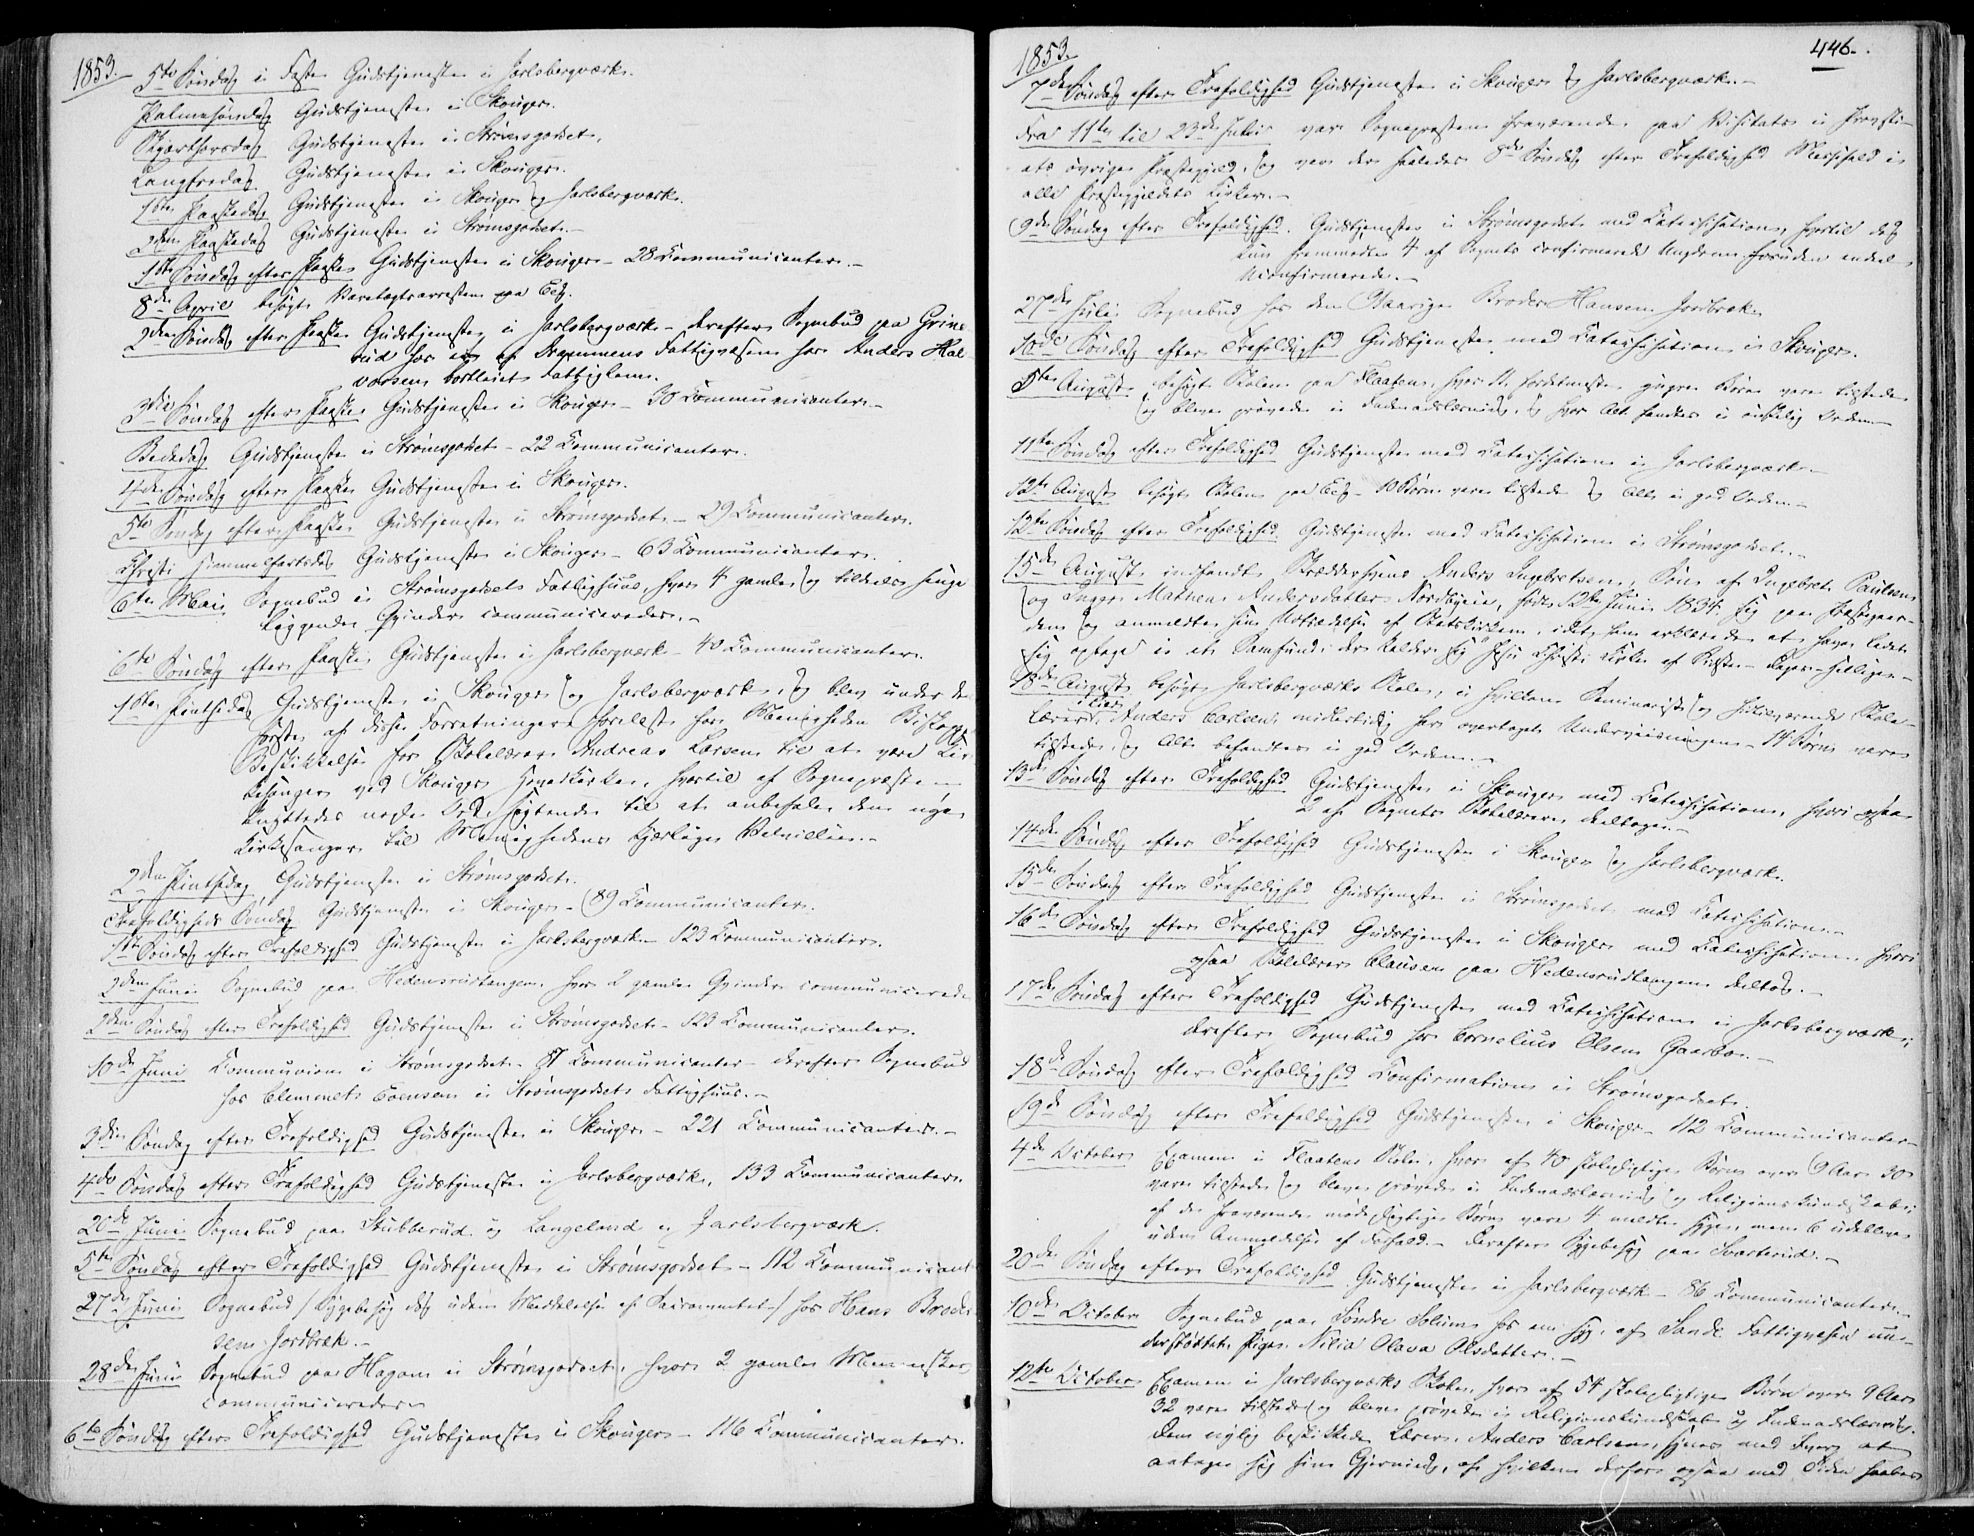 1853.
5te Søndag i Faste Gudstjeneste i Jarlsbergværk.
Palmesøndag Gudstjeneste i Skouger.
Skjærthorsdag Gudstjeneste i Strømsgodset.
Langfredag Gudstjeneste i Skouger.
1ste Paaskedag Gudstjeneste i Skouger og Jarlsbergværk.
2den Paaskedag Gudstjeneste i Strømsgodset.
1ste Søndag efter Paaske Gudstjeneste i Skouger - 28 Communicanter.
8de April besøgt Varetægtsarresten paa Eeg.
2den Søndag efter Paaske Gudstjeneste i Jarlsbergværk - derefter Sognebud paa Grine-
rud hos et af Drammens Fattigvæsen hos Anders Hal-
vorsen bortleiet Fattiglem.
3die Søndag efter Paaske Gudstjeneste i Skouger - 30 Communicanter.
Bededag Gudstjeneste i Strømsgodset - 22 Communicanter.
4de Søndag efter Paaske Gudstjeneste i Skouger.
5te Søndag efter Paaske Gudstjeneste i Strømsgodset - 29 Communicanter.
Christi Himmelfartsdag Gudstjeneste i Skouger - 63 Communicanter.
6te Mai Sognebud i Strømsgodsets Fattighuus, hvor 4 gamle og tildeels senge-
liggende Qvinder communicerede.
6te Søndag efter Paaske Gudstjeneste i Jarlsbergværk - 40 Communicanter.
1ste Pintsedag Gudstjeneste i Skouger og Jarlsbergværk, og blev under den
første af disse Forretninger forelæst for Menigheden Biskoppens
Beskikkelse for Skolelærer Andreas Larsen til at være Kir-
kesanger ved Skouger Hovedkirke, hvortil af Sognepræsten
knyttedes nogle Ord sigtende til at anbefale den nye
Kirkesanger til Menighedens kjærlige Velvillie.
2den Pintsedag Gudstjeneste i Strømsgodset.
Trefoldigheds Søndag Gudstjeneste i Skouger - 89 Communicanter.
1ste Søndag efter Trefoldighed Gudstjeneste i Jarlsbergværk - 123 Communicanter.
2den Juni Sognebud paa Hedensrudtangen, hvor 2 gamle Qvinder communicerede.
2den Søndag efter Trefoldighed Gudstjeneste i Strømsgodset - 123 Communicanter.
10de Juni Communion i Strømsgodset - 81 Communicanter - derefter Sognebud
hos Clemmet Evensen i Strømsgodsets Fattighuus.
3die Søndag efter Trefoldighed Gudstjeneste i Skouger - 221 Communicanter.
4de Søndag efter Trefoldighed Gudstjeneste i Jarlsbergværk, 133 Communicanter.
20de Juni Sognebud paa Stubberud og Langeland i Jarlsbergværk.
5te Søndag efter Trefoldighed Gudstjeneste i Strømsgodset - 112 Communicant
27de Juni Sognebud /Sygebesøg dog uden Meddelelse af Sacramentet/ hos Hans Broder-
sen Jordbræk.
28de Juni Sognebud paa Hagan i Strømsgodset, hvor 2 gamle Mennesker
communicerede.
6te Søndag efter Trefoldighed Gudstjeneste i Skouger - 116 Communicanter.
1853.
446.
7de Søndag efter Trefoldighed Gudstjeneste i Skouger og Jarlsbergværk.
Fra 11te til 23de Juli var Sognepræsten fraværende paa Visitats i Provsti-
ets øvrige Præstegjeld, og var der saaledes 8de Søndag efter Trefoldighed Messefald i
alle Præstegjeldets Kirker.
9de Søndag efter Trefoldighed. Gudstjeneste i Strømsgodset med Catechisation, hvortil dog
kun fremmødte 4 af Sognets confirmerede Ungdom foruden endel
Uconfirmerede.
27de Juli Sognebud hos den aarige Broder Hansen Jordbræk.
10de Søndag efter Trefoldighed Gudstjeneste med Catechisation i Skouger.
5te August besøgt Skolen paa Flaaten, hvor 11 fordetmeste yngre Børn vare tilstede
og bleve prøvede i Indenadslæsning, og hvor Alt fandtes i ønskelig Orden.
11te Søndag efter Trefoldighed Gudstjeneste med Catechisation i Jarlsbergværk.
12te August besøgt Skolen paa Eeg - 10 Børn vare tilstede og Alt i god Orden.
12te Søndag efter Trefoldighed Gudstjeneste med Catechisation i Strømsgodset.
15de August indfandt Skræddersvend Anders Ingebretsen, Søn af Ingebret Paulsen
og Inger Mathea Andersdatter Nordbyeie, født 12te Juni 1834, sig paa Præstegaar-
den og anmeldte sin Udtrædelse af Statskirken, idet han erklærede at have ladet
sig optage i et Samfund der kalder sig Jesu Christi Kirke af Sidste-Dages-Hellige.
18de August besøgt Jarlsbergværks Skole, i hvilken Seminarist og hidtilværende Skole-
lærer Anders Carlsen midlertidig har overtaget Underviisningen - 14 Børn vare
tilstede, og Alt befandtes i god Orden.
13de Søndag efter Trefoldighed Gudstjeneste i Skouger med Catechisation, hvori ogsaa
2 af Sognets Skolelærere deeltoge.
14de Søndag efter Trefoldighed Gudstjeneste i Skouger og Jarlsbergværk.
15de Søndag efter Trefoldighed Gudstjeneste i Strømsgodset med Catechisation.
16de Søndag efter Trefoldighed Gudstjeneste i Skouger med Catechisation, hvori
ogsaa Skolelærer Clausen paa Hedensrudtangen deeltog.
17de Søndag efter Trefoldighed Gudstjeneste med Catechisation i Jarlsbergværk;
derefter Sognebud hos Cornelius Olsen Gaarbo.
18de Søndag efter Trefoldighed Confirmation i Strømsgodset.
19de Søndag efter Trefoldighed Gudstjeneste i Skouger - 112 Communicanter.
4de October Examen i Flaatens Skole, hvor af 40 skolepligtige Børn over 9 Aar 30
vare tilstede og bleve prøvede i Indenadslæsning og Religionskundskab;
af de fraværende mødepligtige Børn vare 4 meldte syge, men 6 udebleve
uden Anmeldelse af Forfald. - Derefter Sygebesøg paa Svarterud.
20de Søndag efter Trefoldighed Gudstjeneste i Jarlsbergværk - 86 Communicanter.
10de October Sognebud paa Søndre Solum hos en syg, af Sande Fattigvæsen un-
derstøttet Pige, Nilia Olava Olsdatter.
12te October Examen i Jarlsbergværks Skole, hvor af 54 skolepligtige Børn over 9 Aar
32 vare tilstede og bleve prøvede i Religionskundskab og Indenadslæsning.
Den nylig beskikkede Lærer, Anders Carlsen, synes med Iver at
antage sig sin Gjerning, af hvilken derfor ogsaa med Tiden haabes